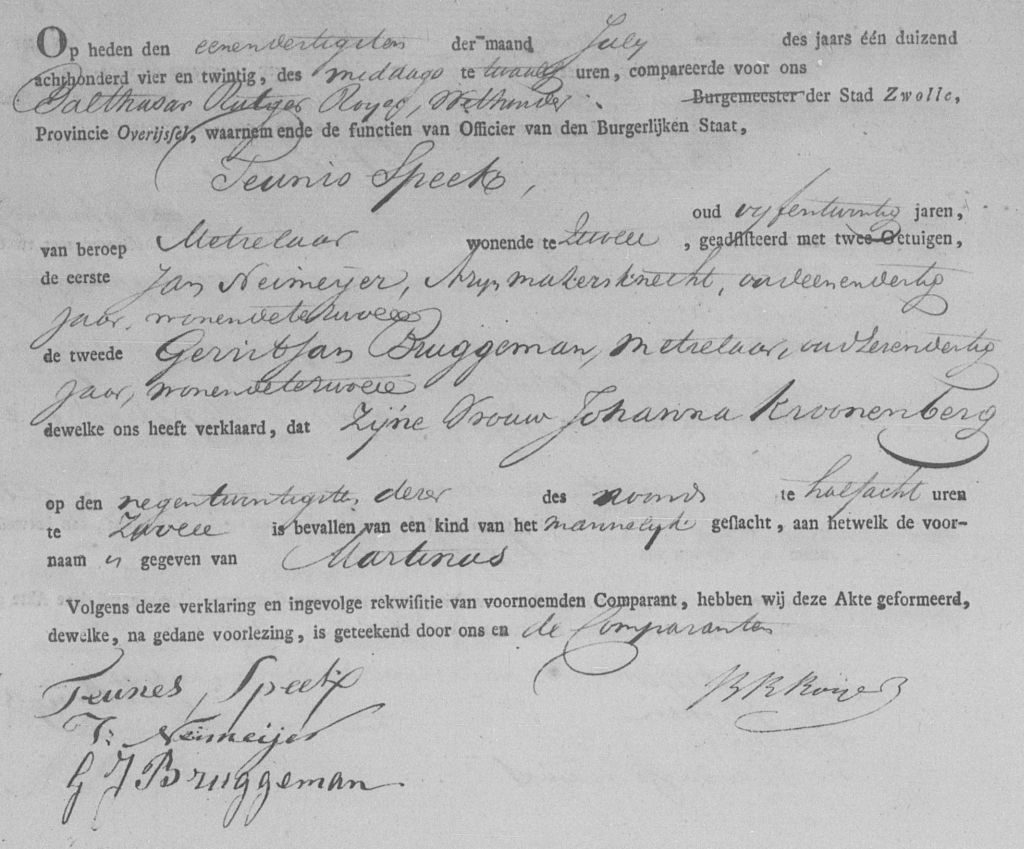 Op heden den eenendertigsten der maand July des jaars één duizend
achthonderd vier en twintig, des middags te twaalf uren, compareerde voor ons
Balthasar Rutger Royer, Wethouder Burgemeester der Stad Zwolle,
Provincie Overijssel, waarnemende de functien van Officier van den Burgerlijken Staat,
Teunis Speek,
oud vyfentwintig jaren,
van beroep Metzelaar wonende te Zwolle, geadsisteerd met twee Getuigen,
de eerste Jan Neimeijer, makersknecht, oud eenendertig
jaar, wonende te Zwolle
de tweede Gerrit Jan Bruggeman, Metzelaar, oud zevendertig
jaar, wonende te Zwolle
dewelke ons heeft verklaard, dat Zijne Vrouw Johanna Kroonenberg
op den negentwintigsten dezer des avonds te half acht uren
te Zwolle is bevallen van een kind van het mannelyk geslacht, aan hetwelk de voor-
naam is gegeven van Martinus
Volgens deze verklaring en ingevolge rekwisitie van voornoemden Comparant, hebben wij deze Akte geformeerd,
dewelke, na gedane voorlezing, is geteekend door ons en de Comparanten
Teunes Speek
BRRoijer
J: Neimeijer
G J Bruggeman